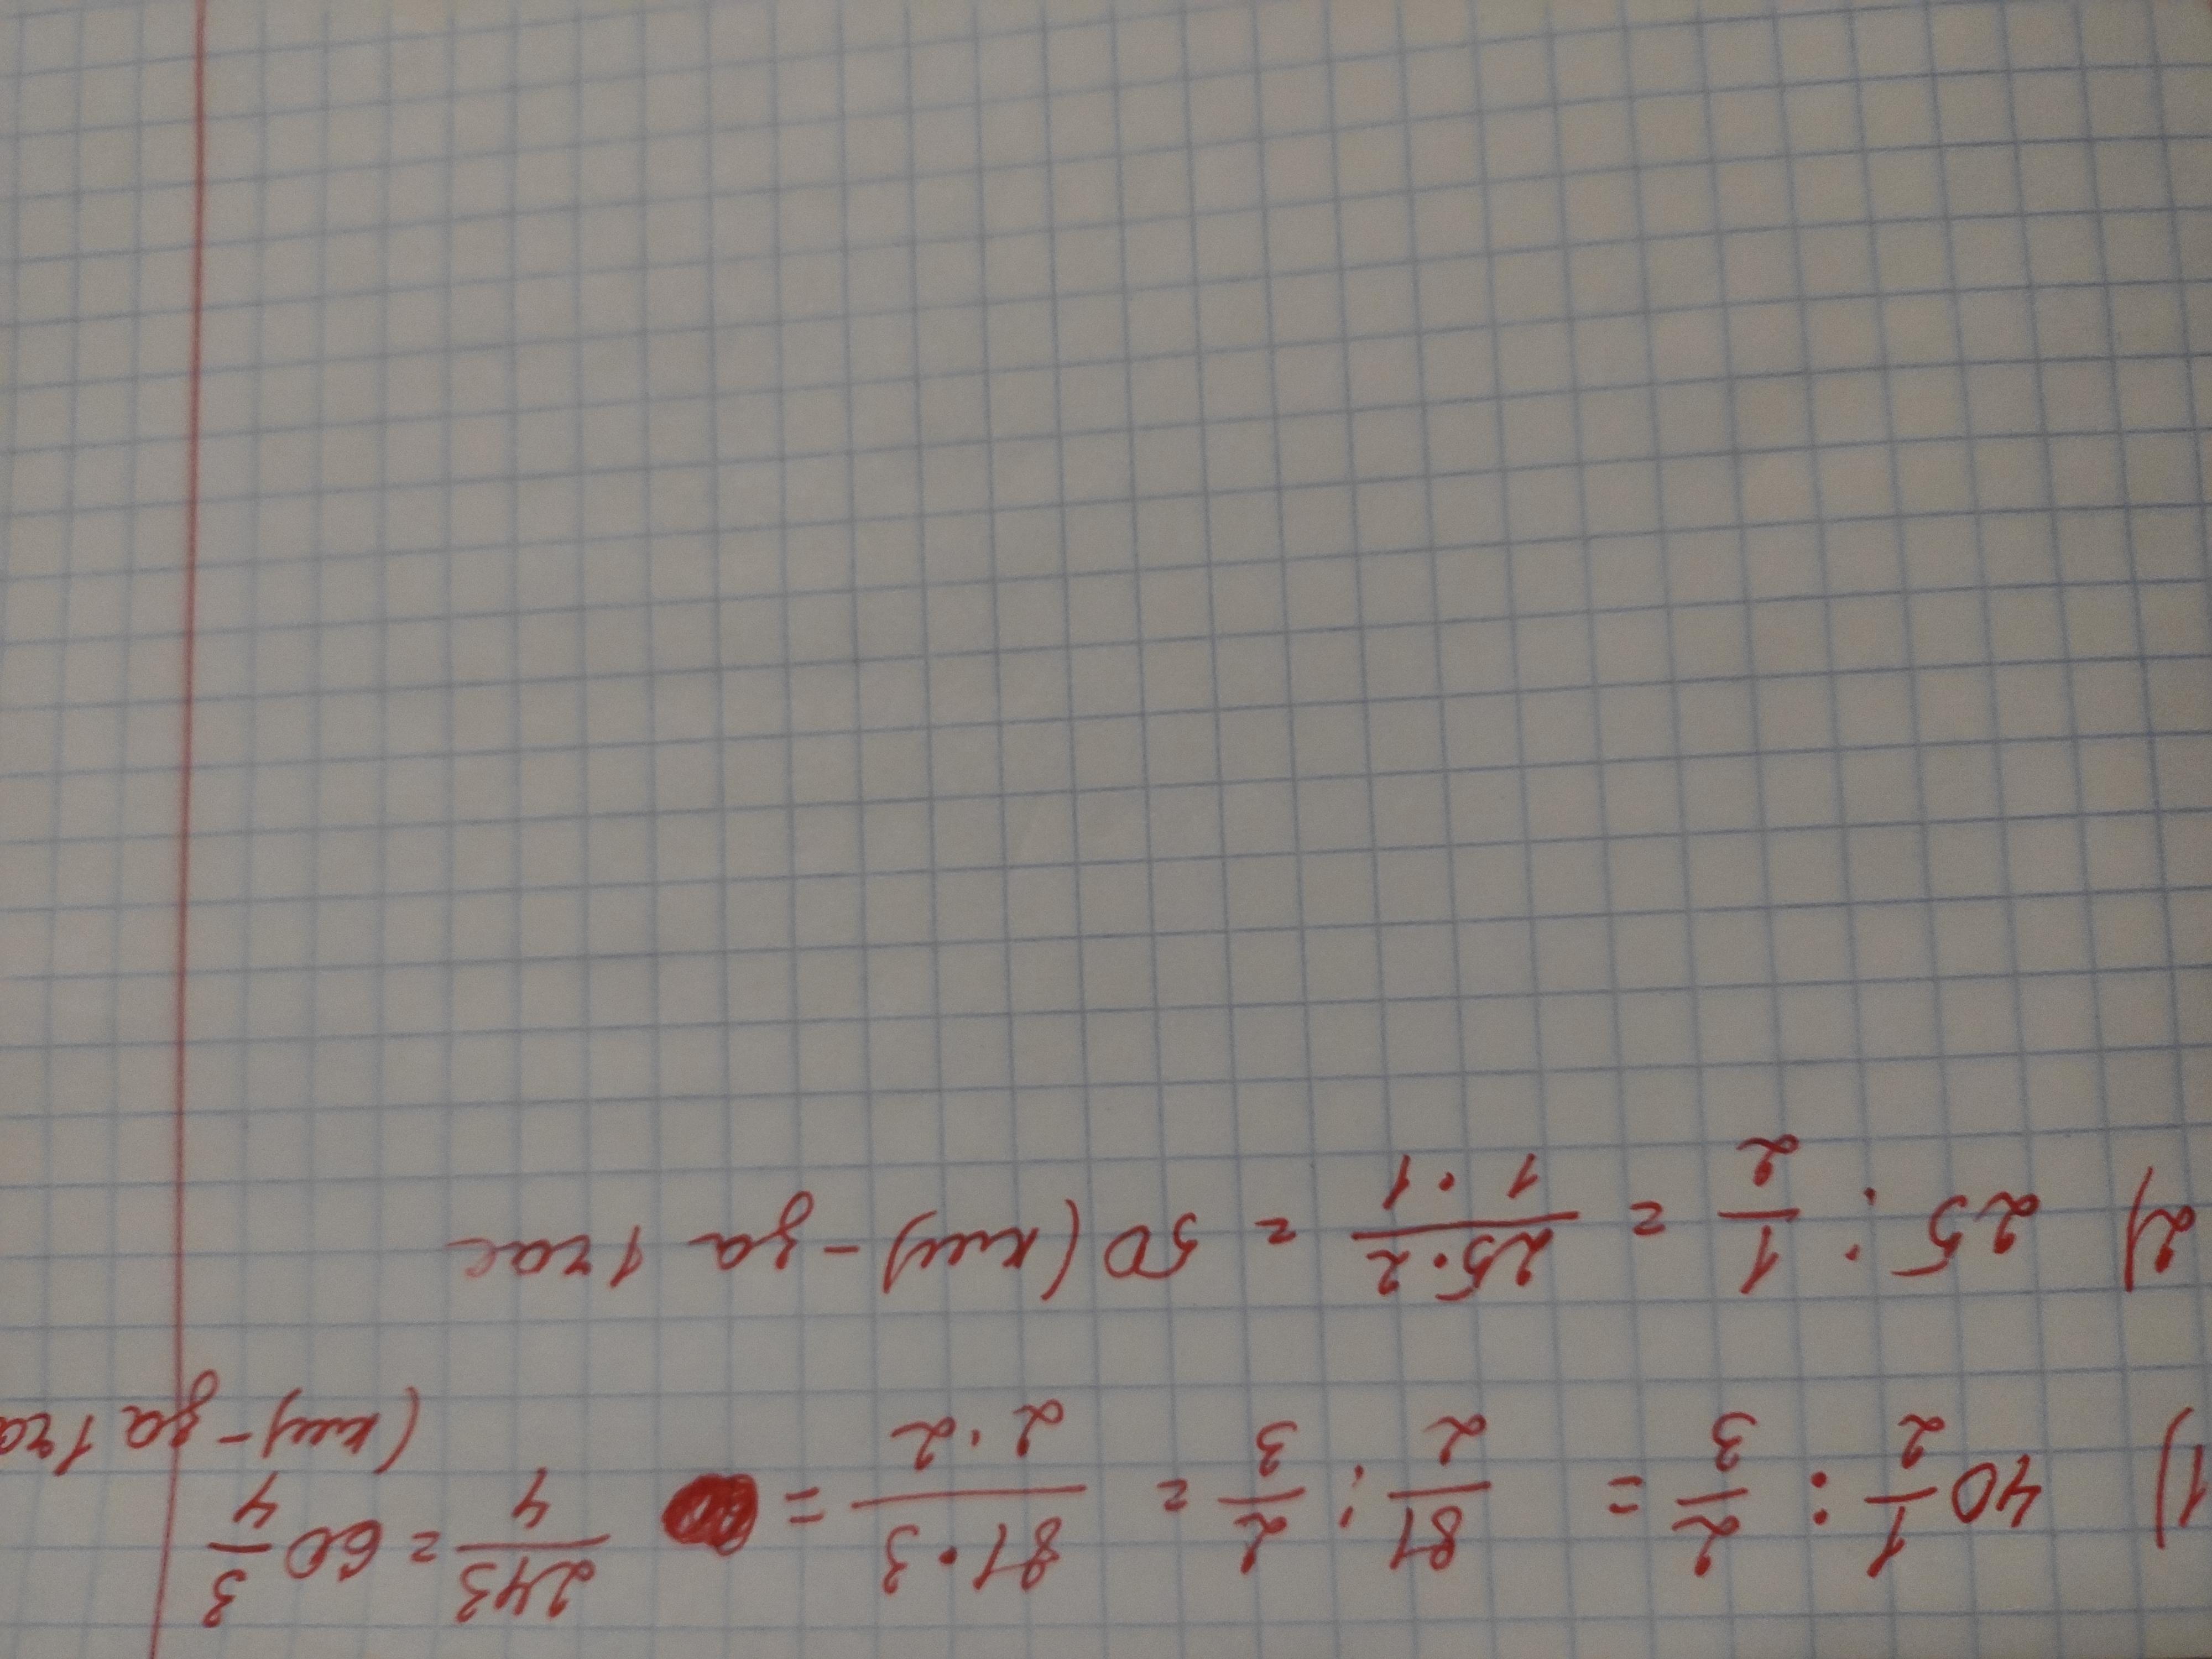 1) 40 1/2 : 2/3 = 81/2 : 2/3 = 81·3/2·2 = 243/4 = 60 3/4 (км) - за 1 ча
2) 25 : 1/2 = 25·2/1·1 = 50 (км) - за 1 час